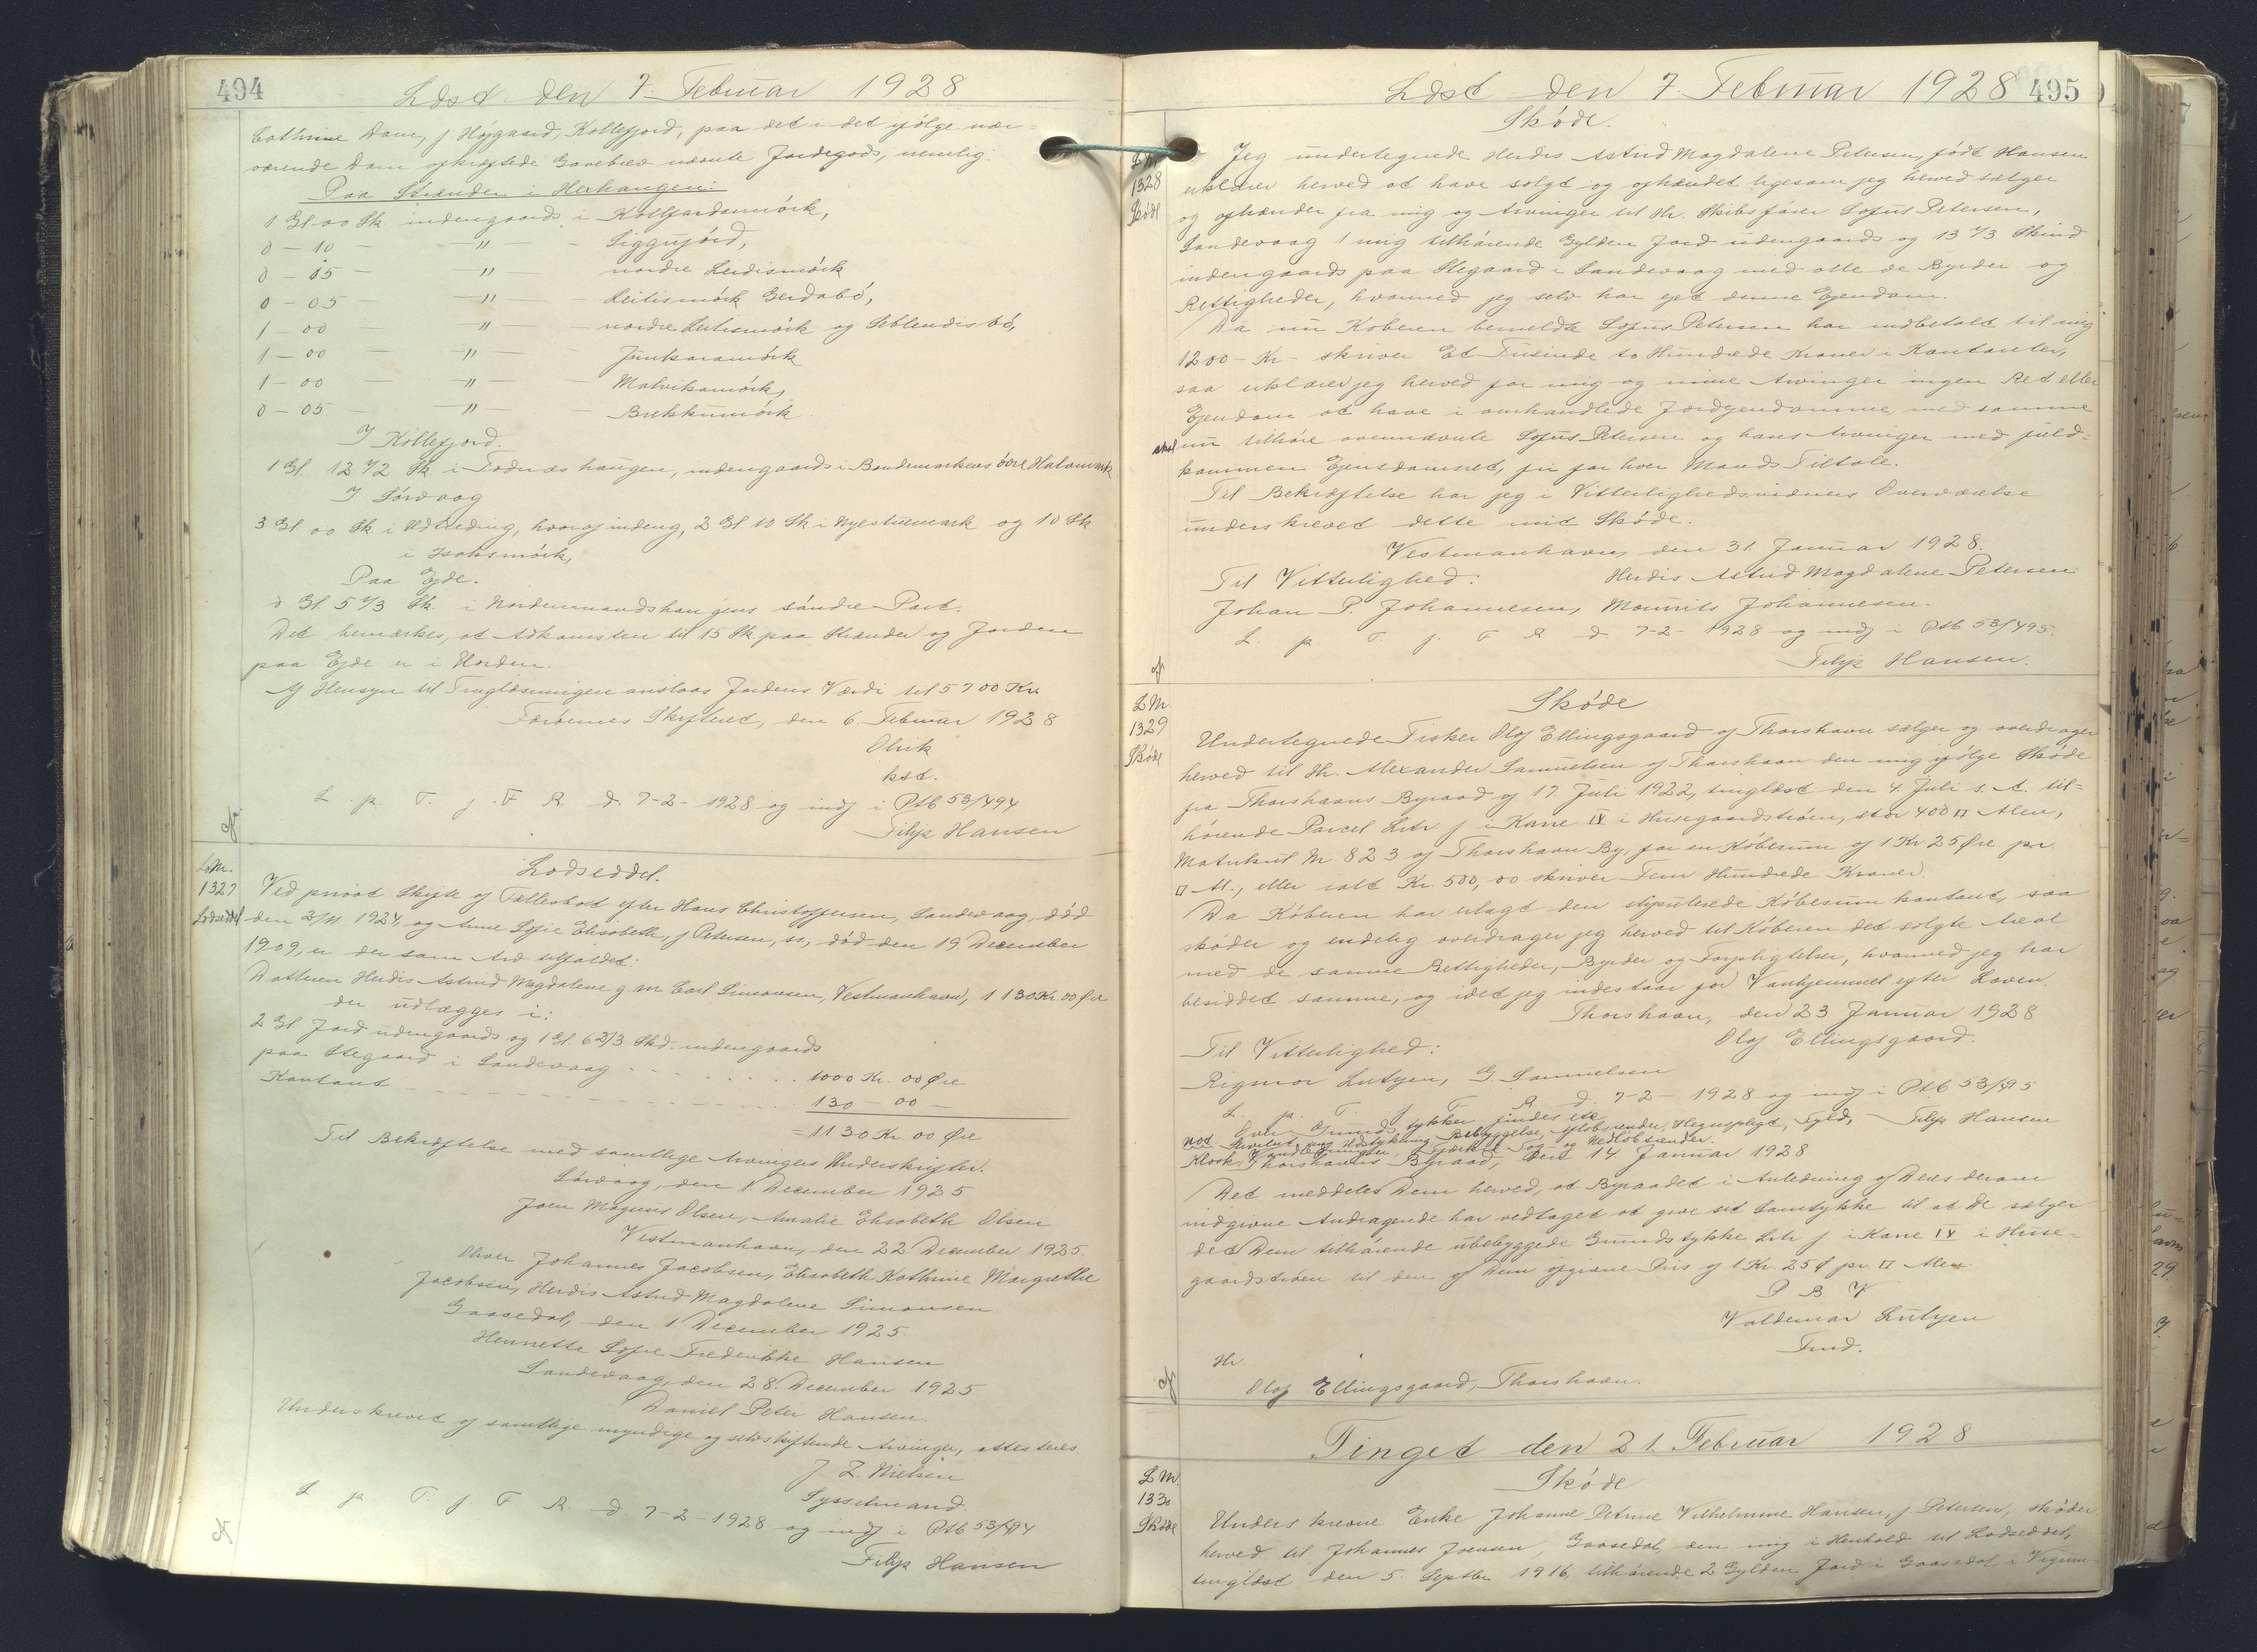 494
Læst den 7. Februar 1928
Cathrine Dam, f Højgaard, Kollefjord, paa det i det ifølge nær-
værende Dom afkræftede Gavebrev nævnte Jordegods, nemlig:
Paa Strænder i Herhangen:
1 Gl 00 Sk indengaards i Kollfjardamørk,
0 - 10 - " - Siggujørd,
0 - 05 - " - nordre Leidismørk
0 - 05 - " - Leitismørk Gerdabø,
1 - 00 - " - nordre Leitismørk og Leblendisbø,
1 - 00 - " - Junkaramørk
1 - 00 - " - Malvikamørk,
0 - 05 - " - Brekkumørk.
I Kollefjord.
1 Gl. 12 1/2 Sk i Todnæs haugen, indengaards i Bondemarkens øvre Halvmark
I Sørvaag
3 Gl 00 Sk i Udtræding, hvoraf indeng, 2 Gl 10 Sk i Nyestuemark og 10 Sk
i Isaksmørk,
Paa Ejde.
0 Gl. 5 1/3 Sk. i Nordenmandshaugens søndre Part.
Det bemærkes, at Adkomsten til 15 Sk paa Strænder og Jorden
paa Ejde er i Orden.
Af Hensyn til Tinglæsningen anslaas Jordens Værdi til 5700 Kr.
Færøernes Skifteret, den 6. Februar 1928
Olrik
kst.
L. p. T. f. F R. d. 7-2-1928 og indf i Ptb 53/494
Filip Hansen
L.Nr.
1327
Lodseddel
Lodseddel.
Ved privat Skifte af Fællesboet efter Hans Christoffersen, Sandevaag, død
den 2/11 1924, og Anne Sofie Elisabeth, f Petersen, ss., død den 19 December
1909, er der som Arv tilfaldet:
Datteren Herdis Astrid Magdalene g. m Carl Simonsen, Vestmanhavn, 1130 Kr 00 Øre
der udlægges i:
2 Gl Jord udengaards og 1 Gl 6 2/3 Skd. indengaards
paa Stegaard i Sandevaag - - - 1000 Kr. 00 Øre
Kontant - - - 130 - 00 -
= 1130 Kr. 00 Øre
Til Bekræftelse med samtlige Arvingers Underskrifter.
Sørvaag, den 1. December 1925
Joen Magnus Olsen, Amalie Elisabeth Olsen
Vestmanhavn, den 22. December 1925.
Oliver Johannes Jacobsen, Elisabeth Kathrine Margrethe
Jacobsen, Herdis Astrid Magdalene Simonsen
Gaasedal, den 1. December 1925.
Henriette Sofie Frederikke Hansen
Sandevaag, den 28. December 1925
Daniel Peter Hansen
Underskrevet af samtlige myndige og selvskiftende Arvinger, attesteres
J Z. Nielsen
Sysselmand.
L p T. f. F R. d 7-2-1928 og indf i Ptb 53/494
Filip Hansen
Læst den 7 Februar 1928 495
Skøde.
1328
Skøde
Jeg undertegnede Herdis Astrid Magdalene Petersen, født Hansen
erklærer herved at have solgt og afhændet ligesom jeg herved sælger
og afhænder fra mig og Arvinger til Hr. Skibsfører Sofus Petersen,
Sandevaag 1 mig tilhørende Gylden Jord udengaards og 13 1/3 Skind
indengaards paa Stegaard i Sandevaag med alle de Byrder og
Rettigheder, hvormed jeg selv har ejet denne Ejendom.
Da nu Køberen bemeldte Sofus Petersen har indbetalt til mig
1200 - Kr - skriver Et Tusinde to Hundrede Kroner i Kontanter,
saa erklærer jeg herved for mig og mine Arvinger ingen Ret eller
Ejendom at have i omhandlede Jordejendomme, med samme
skal nu tilhøre ovennævnte Sofus Petersen og hans Arvinger med fuld-
kommen Ejendomsret, fri for hver Mands Tiltale.
Til Bekræftelse har jeg i Vitterlighedsvidners Overværelse
underskrevet dette mit Skøde.
Vestmanhavn, den 31. Januar 1928.
Til Vitterlighed: Herdis Astrid Magdalene Petersen
Johan P. Johannesen, Mourits Johannesen.
L. p. T. f. F R d. 7-2-1928 og indf i Ptb 53/495.
Filip Hansen.
L Nr.
1329
Skøde
Skøde
Undertegnede Fisker Olaf Ellingsgaard af Thorshavn sælger og overdrager
herved til Hr. Alexander Samuelsen af Thorshavn den mig ifølge Skøde
fra Thorshavns Byraad af 17 Juli 1922, tinglæst den 4. Juli s. A. til-
hørende Parcel Litr. f i Karré IV i Husegaardstrøen, stor 400 □ Alen,
Matrikul Nr. 823 af Thorshavn By, for en Købesum af 1 Kr 25 Øre pr.
□ Al., eller ialt Kr. 500,00 skriver Fem Hundrede Kroner.
Da Køberen har erlagt den stipulerede Købesum kontant, saa
skøder og endelig overdrager jeg herved til Køberen det solgte Areal
med de samme Rettigheder, Byrder og Forpligtelser, hvormed jeg har
besiddet samme, og idet jeg indestaar for Vanhjemmel efter Loven.
Thorshavn, den 23 Januar 1928
Til Vitterlighed: Olaf Ellingsgaard.
Rigmor Lutzen, G. Samuelsen
L. p. T. f F R. d. 7-2-1928 og indf i Ptb 53/495
Over Grundstykker findes ete Filip Hansen
not Servitut ang Udstykning, Bebyggelse, Afløbsrender, Hegnspligt, Fyld,
Kloak, Vandledningen, Tag- og Nedløbsrender.
Thorshavns Byraad, den 14 Januar 1928
Det meddeles Dem herved, at Byraadet i Anledning af Deres derom
indgivne Andragende har vedtaget at give sit Samtykke til at De sælger
det Dem tilhørende ubebyggede Grundstykke Litr f i Karré IV i Huse-
gaardstrøen til den af Dem opgivne Pris af 1 Kr. 25 Ø pr. □ Alen
P B V
Valdemar Lutzen
Fmd.
Hr.
Olaf Ellingsgaard, Thorshavn.
Tinget den 21. Februar 1928
L Nr.
1330
Skøde
Skøde
Underskrevne Enke Johanne Petrine Vilhelmine Hansen, f. Petersen, skøder
herved til Johannes Joensen, Gaasedal, den mig i Henhold til Lodseddel,
tinglæst den 5. Septbr 1916, tilhørende 2 Gylden Jord i Gaasedal i